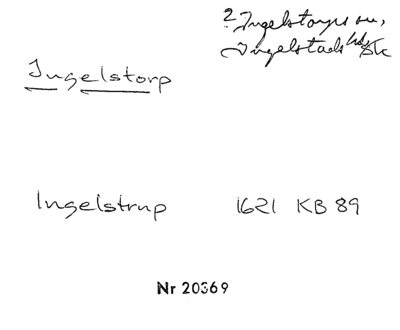 ? Ingelstorps sn,
Ingelstads hd, Sk
Ingelstorp
Ingelstrup 1621 KB 89
Nr 20369